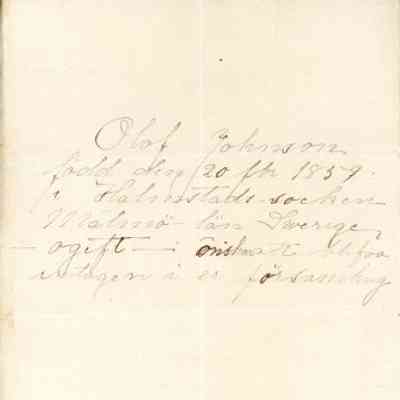 Olof Johnson
född den 20 fbr 1859.
i Halmstads socken
Malmö län Sverige,
— ogift — önskar att blifva
intagen i er församling